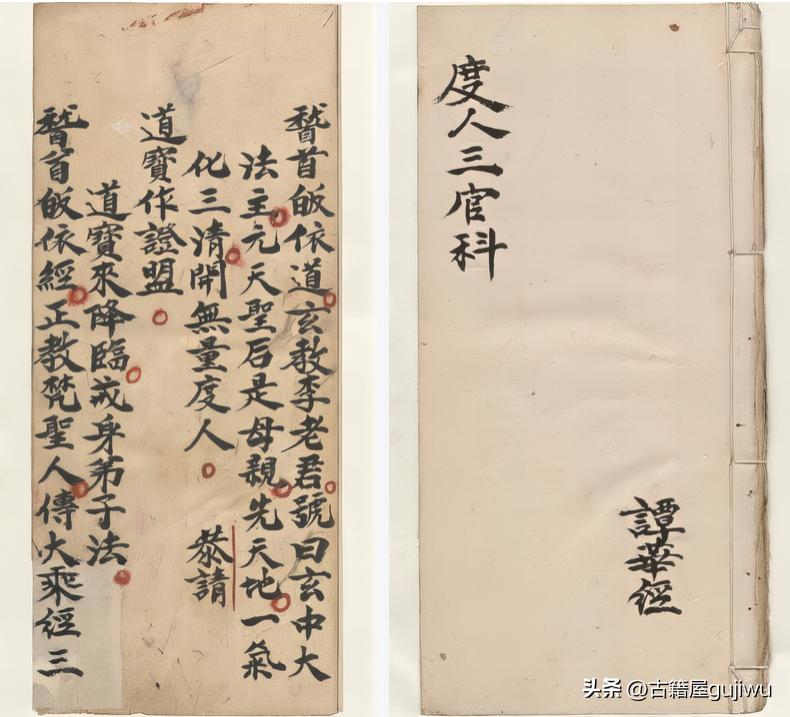 度人三官科
譚華經
稽首皈依道玄教李老君號曰玄中大
法主元天聖后是母親先天地一氣
化三清開無量度人 恭請
道寶作證盟
道寶來降臨戒身弟子法
稽首皈依經正教梵聖人傳大乘經三
头条 @古籍屋gujiwu